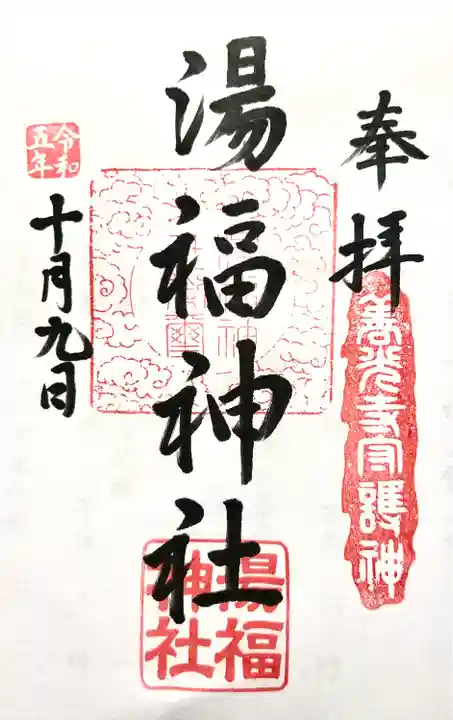 奉拝
善光寺守護神
湯福神社
湯福
神社
令和
五年
十月九日